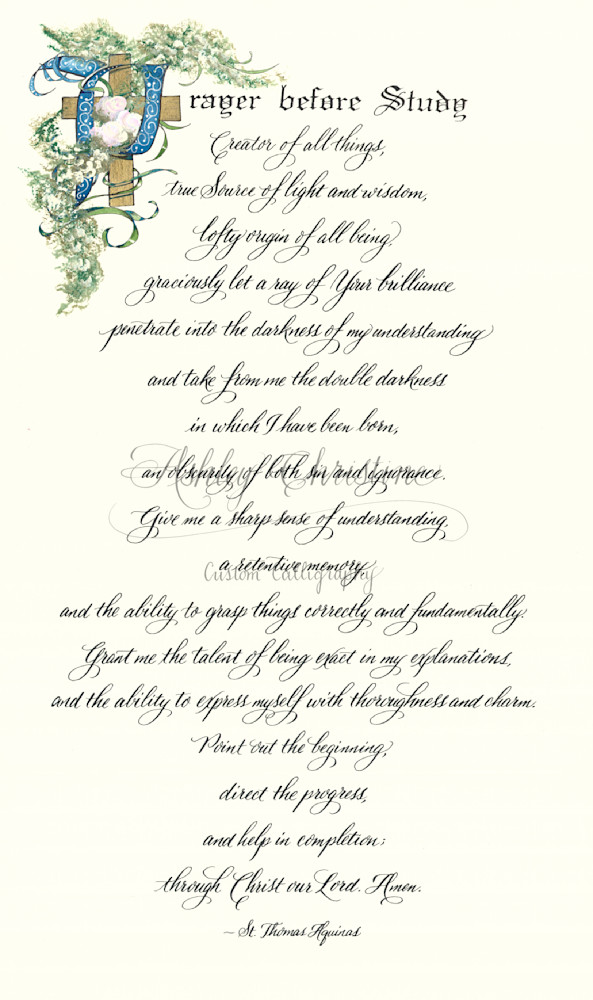 Prayer before Study
Creator of all things,
true Source of light and wisdom,
lofty origin of all being,
graciously let a ray of Your brilliance
penetrate into the darkness of my understanding
and take from me the double darkness
in which I have been born,
an obscurity of both sin and ignorance.
Ashley Christine
Give me a sharp sense of understanding,
a retentive memory,
Custom Calligraphy
and the ability to grasp things correctly and fundamentally.
Grant me the talent of being exact in my explanations,
and the ability to express myself with thoroughness and charm.
Point out the beginning,
direct the progress,
and help in completion;
through Christ our Lord. Amen.
~ St. Thomas Aquinas